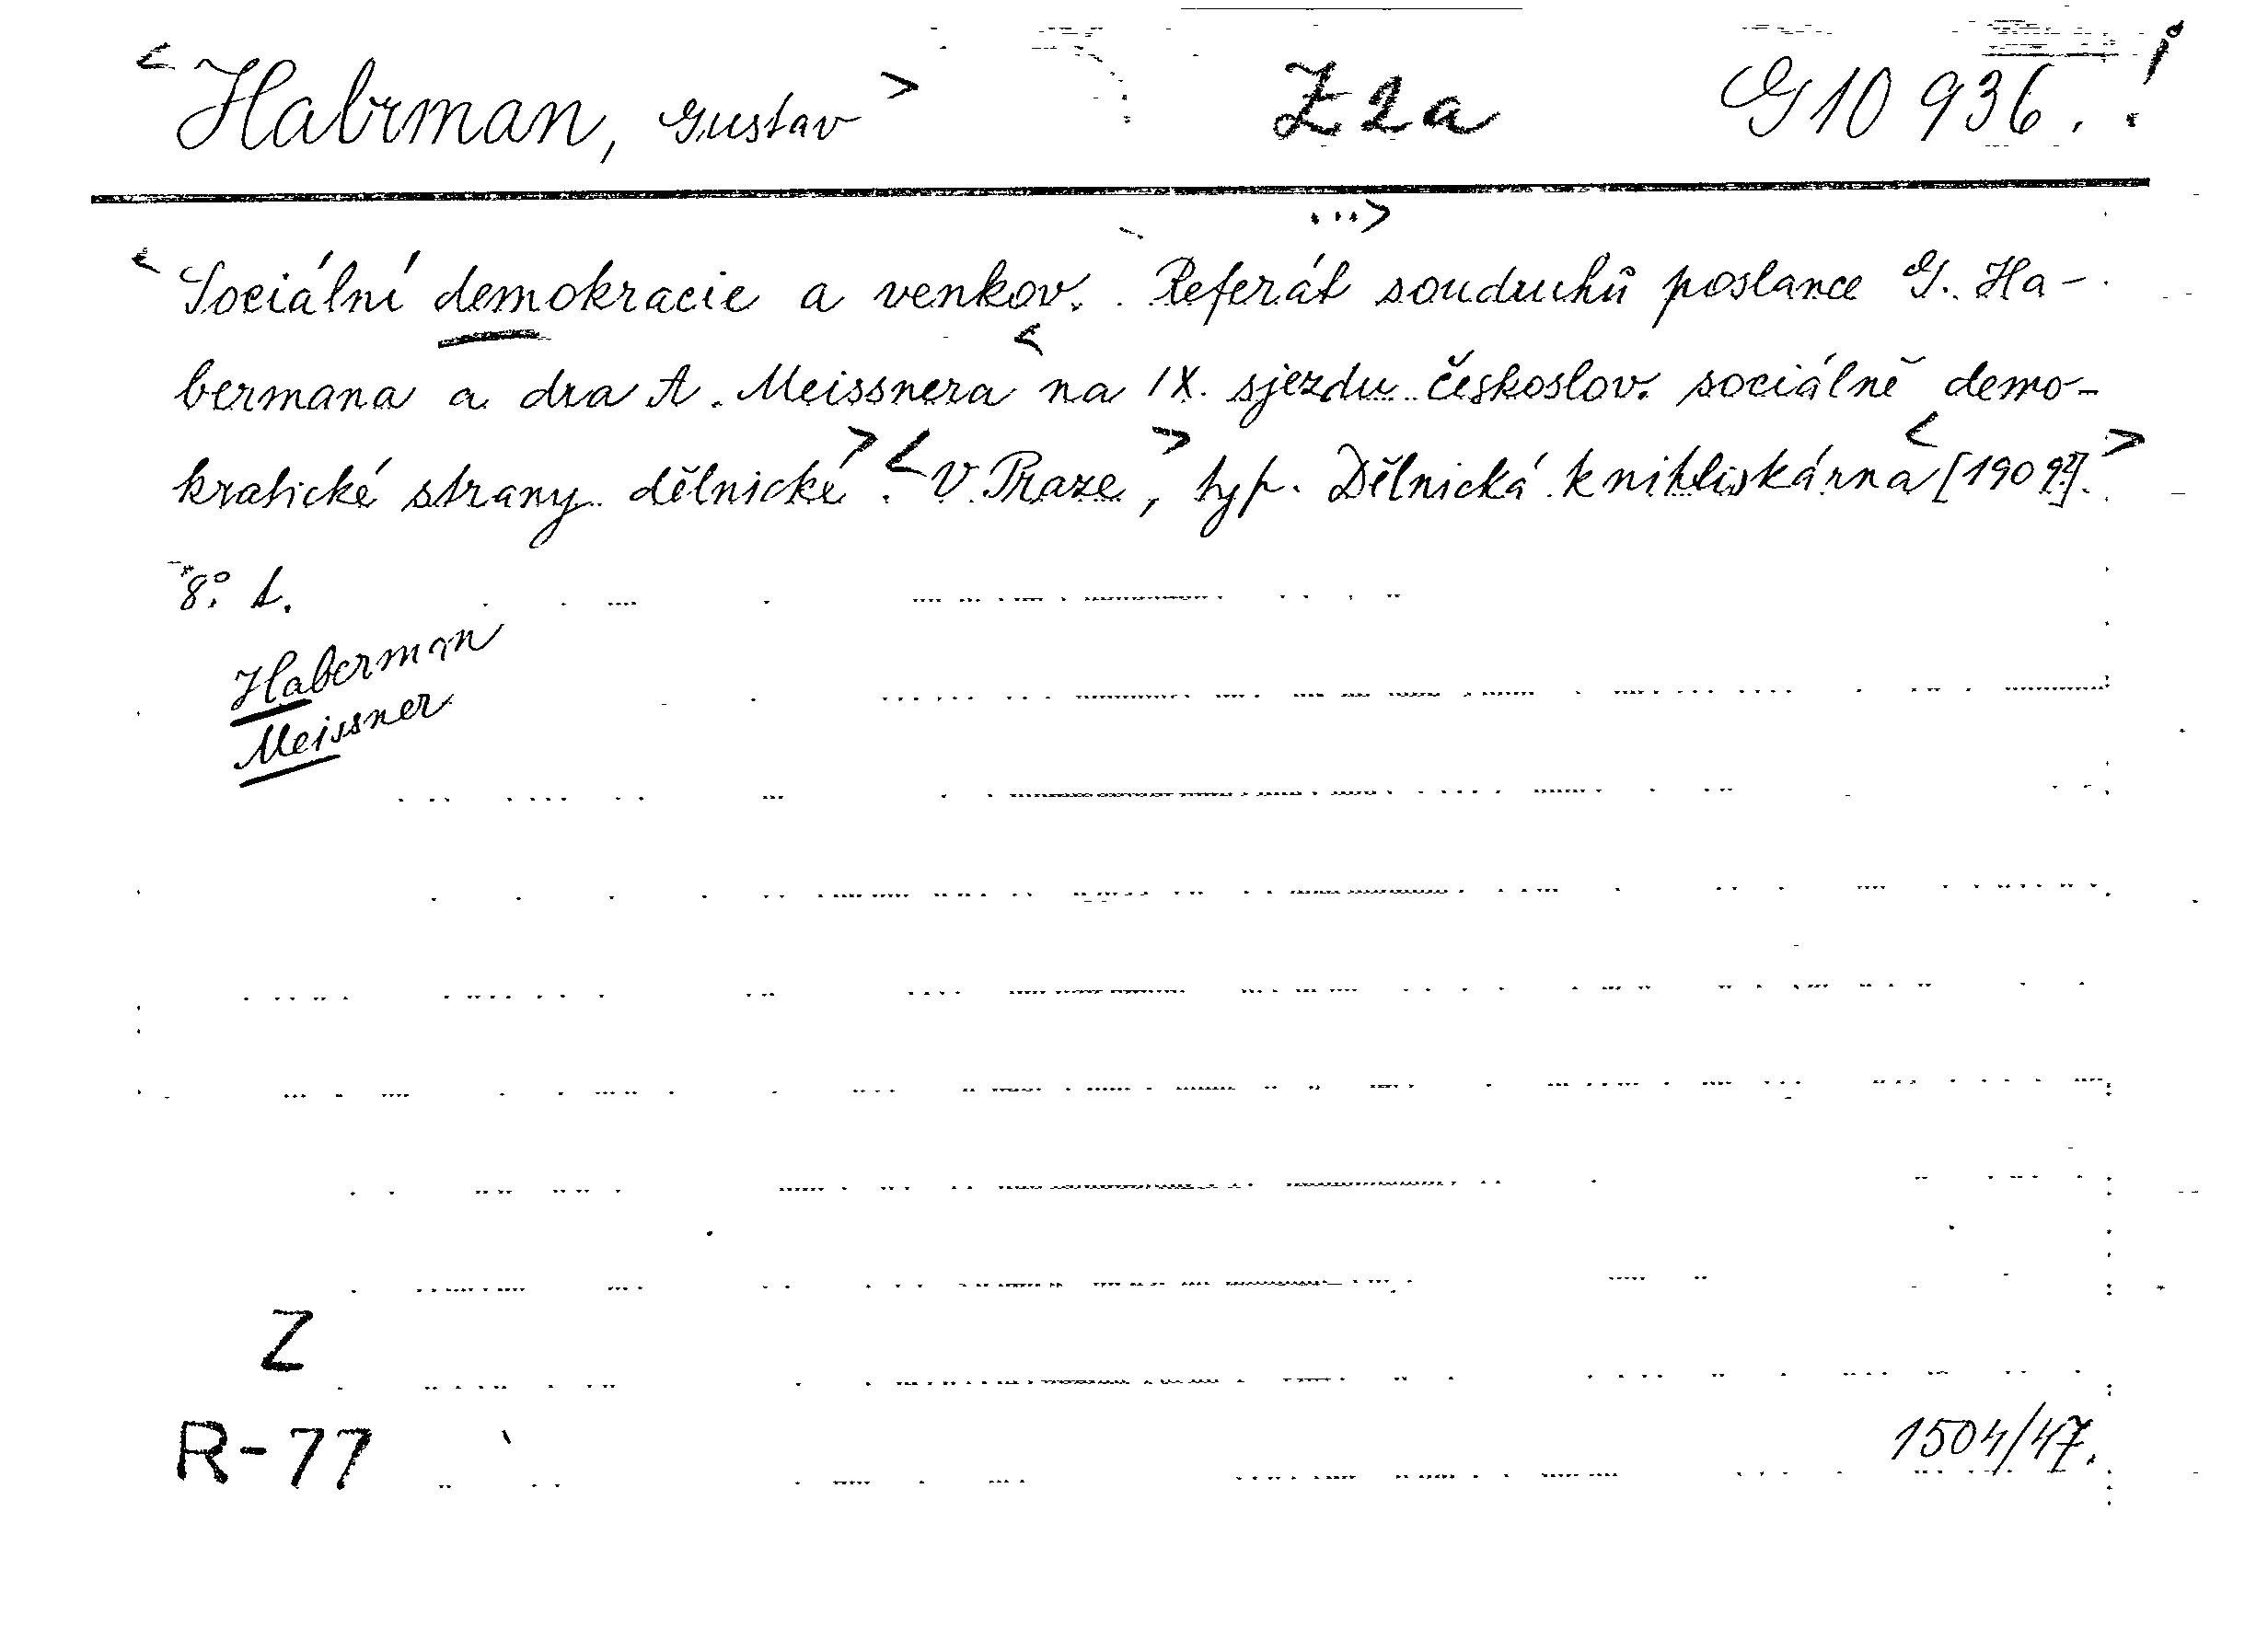 <Habrman, Gustav> Z 2a G 10 936. i
...>
<Sociální demokracie a venkov. Referát souduchů poslance G. Ha-
bermana a dra A. Meissnera < na IX. sjezdu českoslov. sociálně demo-
kratické strany dělnické>. <V Praze>, typ. Dělnická knihtiskárna <[1909?].>
8°. 1.
Haberman
Meissner
Z
R-77
1504/47.